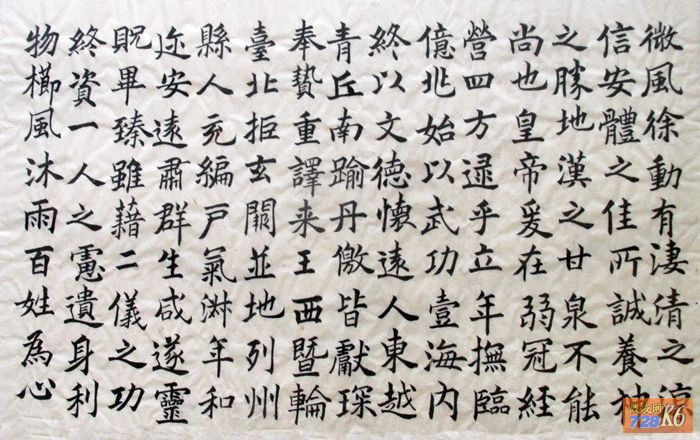 微風徐動有淒清之涼
信安體之佳所誠養神
之勝地漢之甘泉不能
尚也皇帝爰在弱冠經
營四方逮乎立年撫臨
億兆始以武功壹海內
終以文德懷遠人東越
青丘南踰丹儌皆獻琛
奉贄重譯来王西暨輪
臺北拒玄闕並地列州
縣人充編戸氣淋年和
迩安遠肅群生咸遂靈
貺畢臻雖藉二儀之功
終資一人之慮遺身利
物櫛風沐雨百姓為心
728 K6